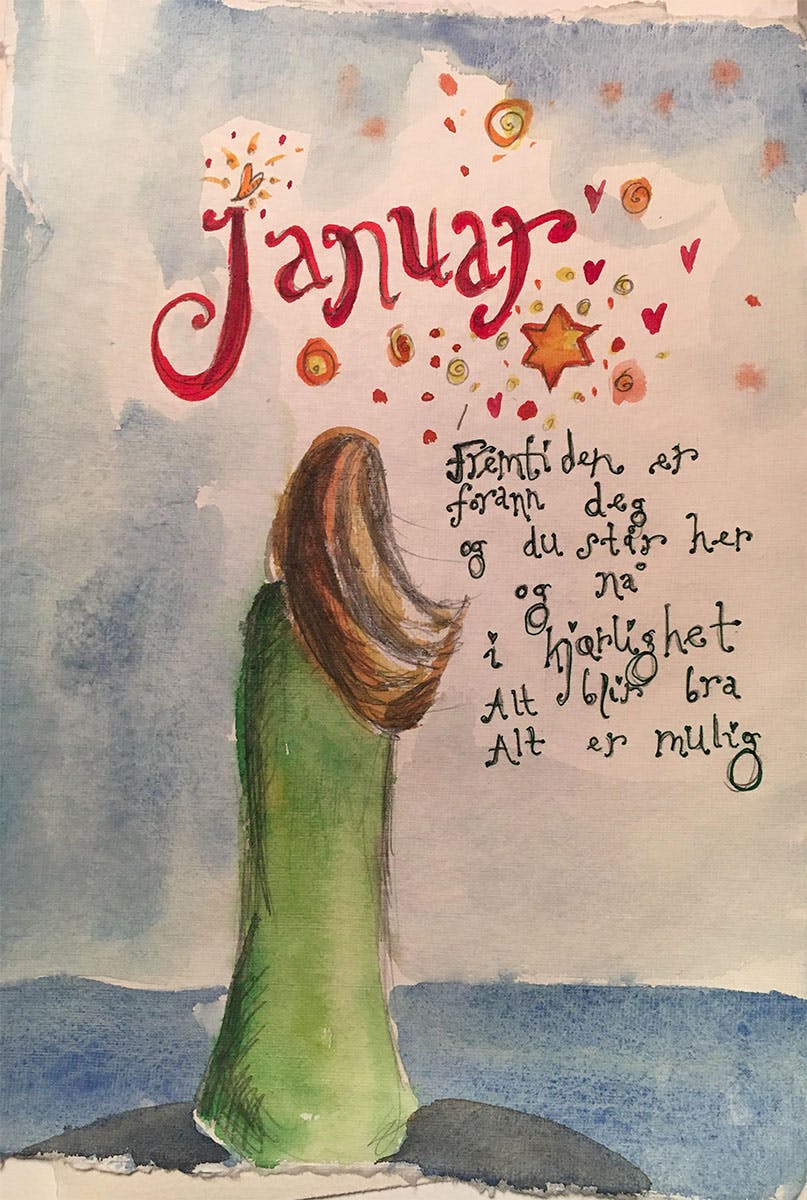 Januar
Fremtiden er
forann deg
og du står her
og nå
i kjærlighet
Alt blir bra
Alt er mulig